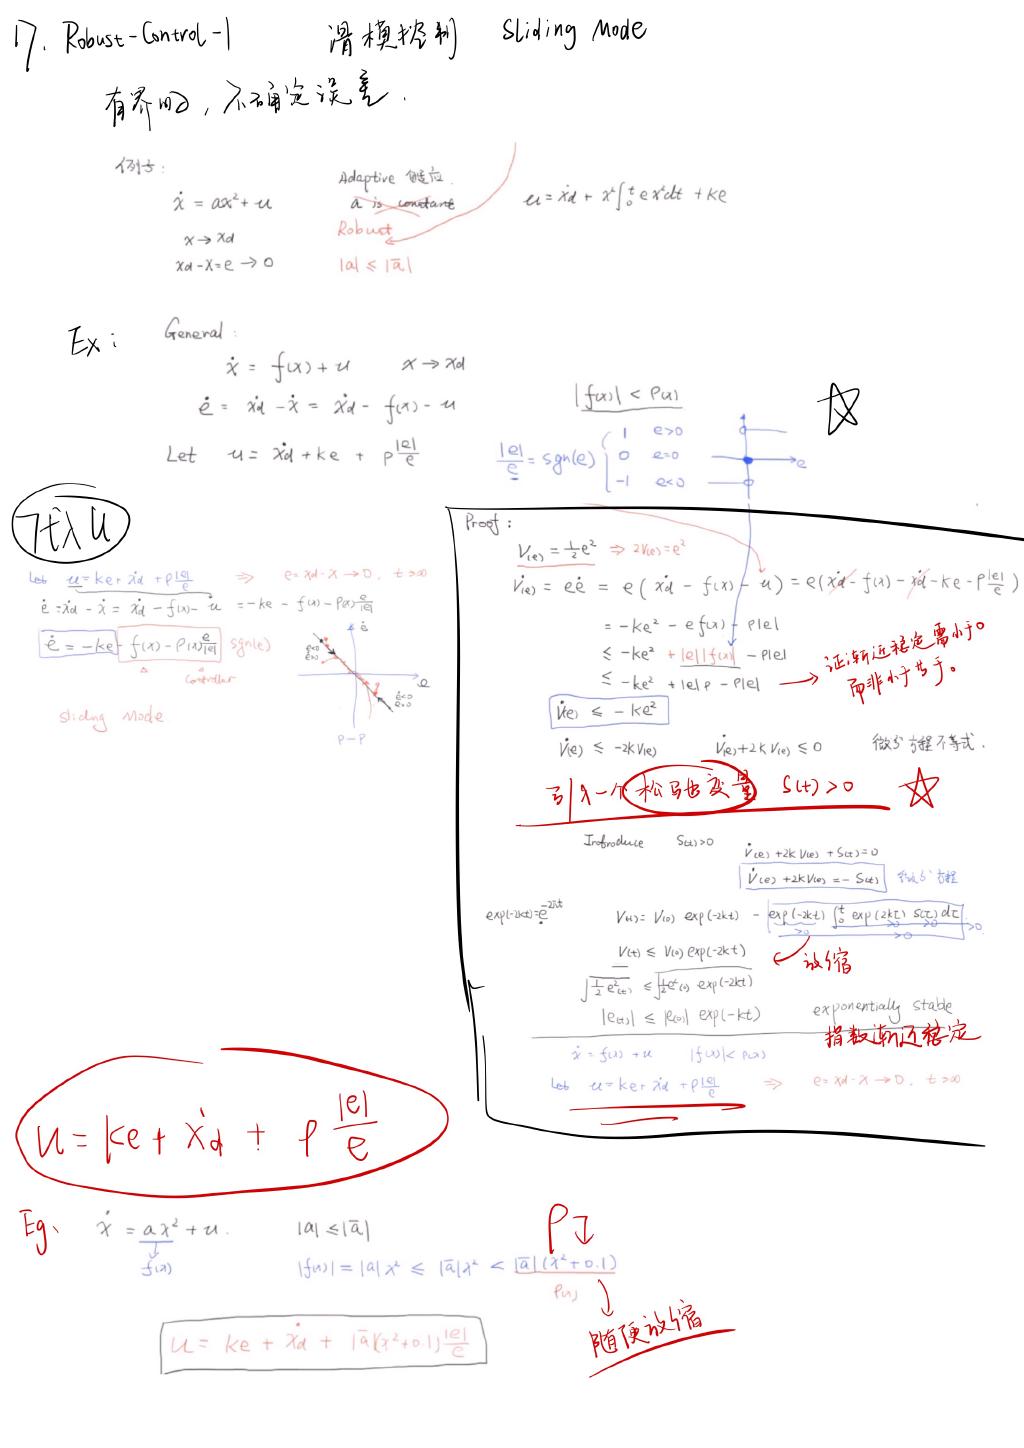 17. Robust-Control-1 滑模控制 Sliding Mode
有界的, 不确定误差.
例子:
ẋ = ax² + u
x → xd
xd - x = e → 0
Adaptive 自适应.
a is constant
Robust
|a| ≤ |ā|
u = ẋd + x²∫₀ᵗ e x² dt + ke
Ex:
General:
ẋ = f(x) + u x → xd
ė = ẋd - ẋ = ẋd - f(x) - u
Let u = ẋd + ke + ρ|e|/e
|f(x)| < ρ(x)
|e|/e = sgn(e) { 1 e>0
0 e=0
-1 e<0
e
代入 u
Let u = ke + ẋd + ρ|e|/e ⇒ e = xd - x → 0, t → ∞
ė = ẋd - ẋ = ẋd - f(x) - u = -ke - f(x) - ρ(x) e/|e|
ė = -ke - f(x) - ρ(x) e/|e| sgn(e)
Controller
Sliding Mode
ė
e
P-P
Proof:
V(e) = ½e² ⇒ 2V(e) = e²
V̇(e) = eė = e(ẋd - f(x) - u) = e(ẋd - f(x) - ẋd - ke - ρ|e|/e)
= -ke² - ef(x) - ρ|e|
≤ -ke² + |e||f(x)| - ρ|e|
≤ -ke² + |e|ρ - ρ|e| → 证渐近稳定需小于0
而非小于等于。
V̇(e) ≤ -ke²
V̇(e) ≤ -2kV(e) V̇(e) + 2kV(e) ≤ 0 微分方程不等式.
引入一个松弛变量 S(t) > 0
Introduce S(t) > 0
V̇(e) + 2kV(e) + S(t) = 0
V̇(e) + 2kV(e) = -S(t) 微分方程
exp(-2kt) = e^-2kt
V(t) = V(0) exp(-2kt) - exp(-2kt) ∫₀ᵗ exp(2kτ) S(τ) dτ >0
>0 >0 >0
>0
V(t) ≤ V(0) exp(-2kt) 放缩
√½e²(t) ≤ √½e²(0) exp(-2kt)
|e(t)| ≤ |e(0)| exp(-kt) exponentially stable
指数渐近稳定
ẋ = f(x) + u |f(x)| < ρ(x)
Let u = ke + ẋd + ρ|e|/e ⇒ e = xd - x → 0, t → ∞
u = ke + ẋd + ρ|e|/e
Eg、 ẋ = ax² + u. |a| ≤ |ā|
f(x)
ρ↓
|f(x)| = |a|x² ≤ |ā|x² < |ā|(x² + 0.1)
ρ(x)
随便放缩
u = ke + ẋd + |ā|(x² + 0.1)|e|/e